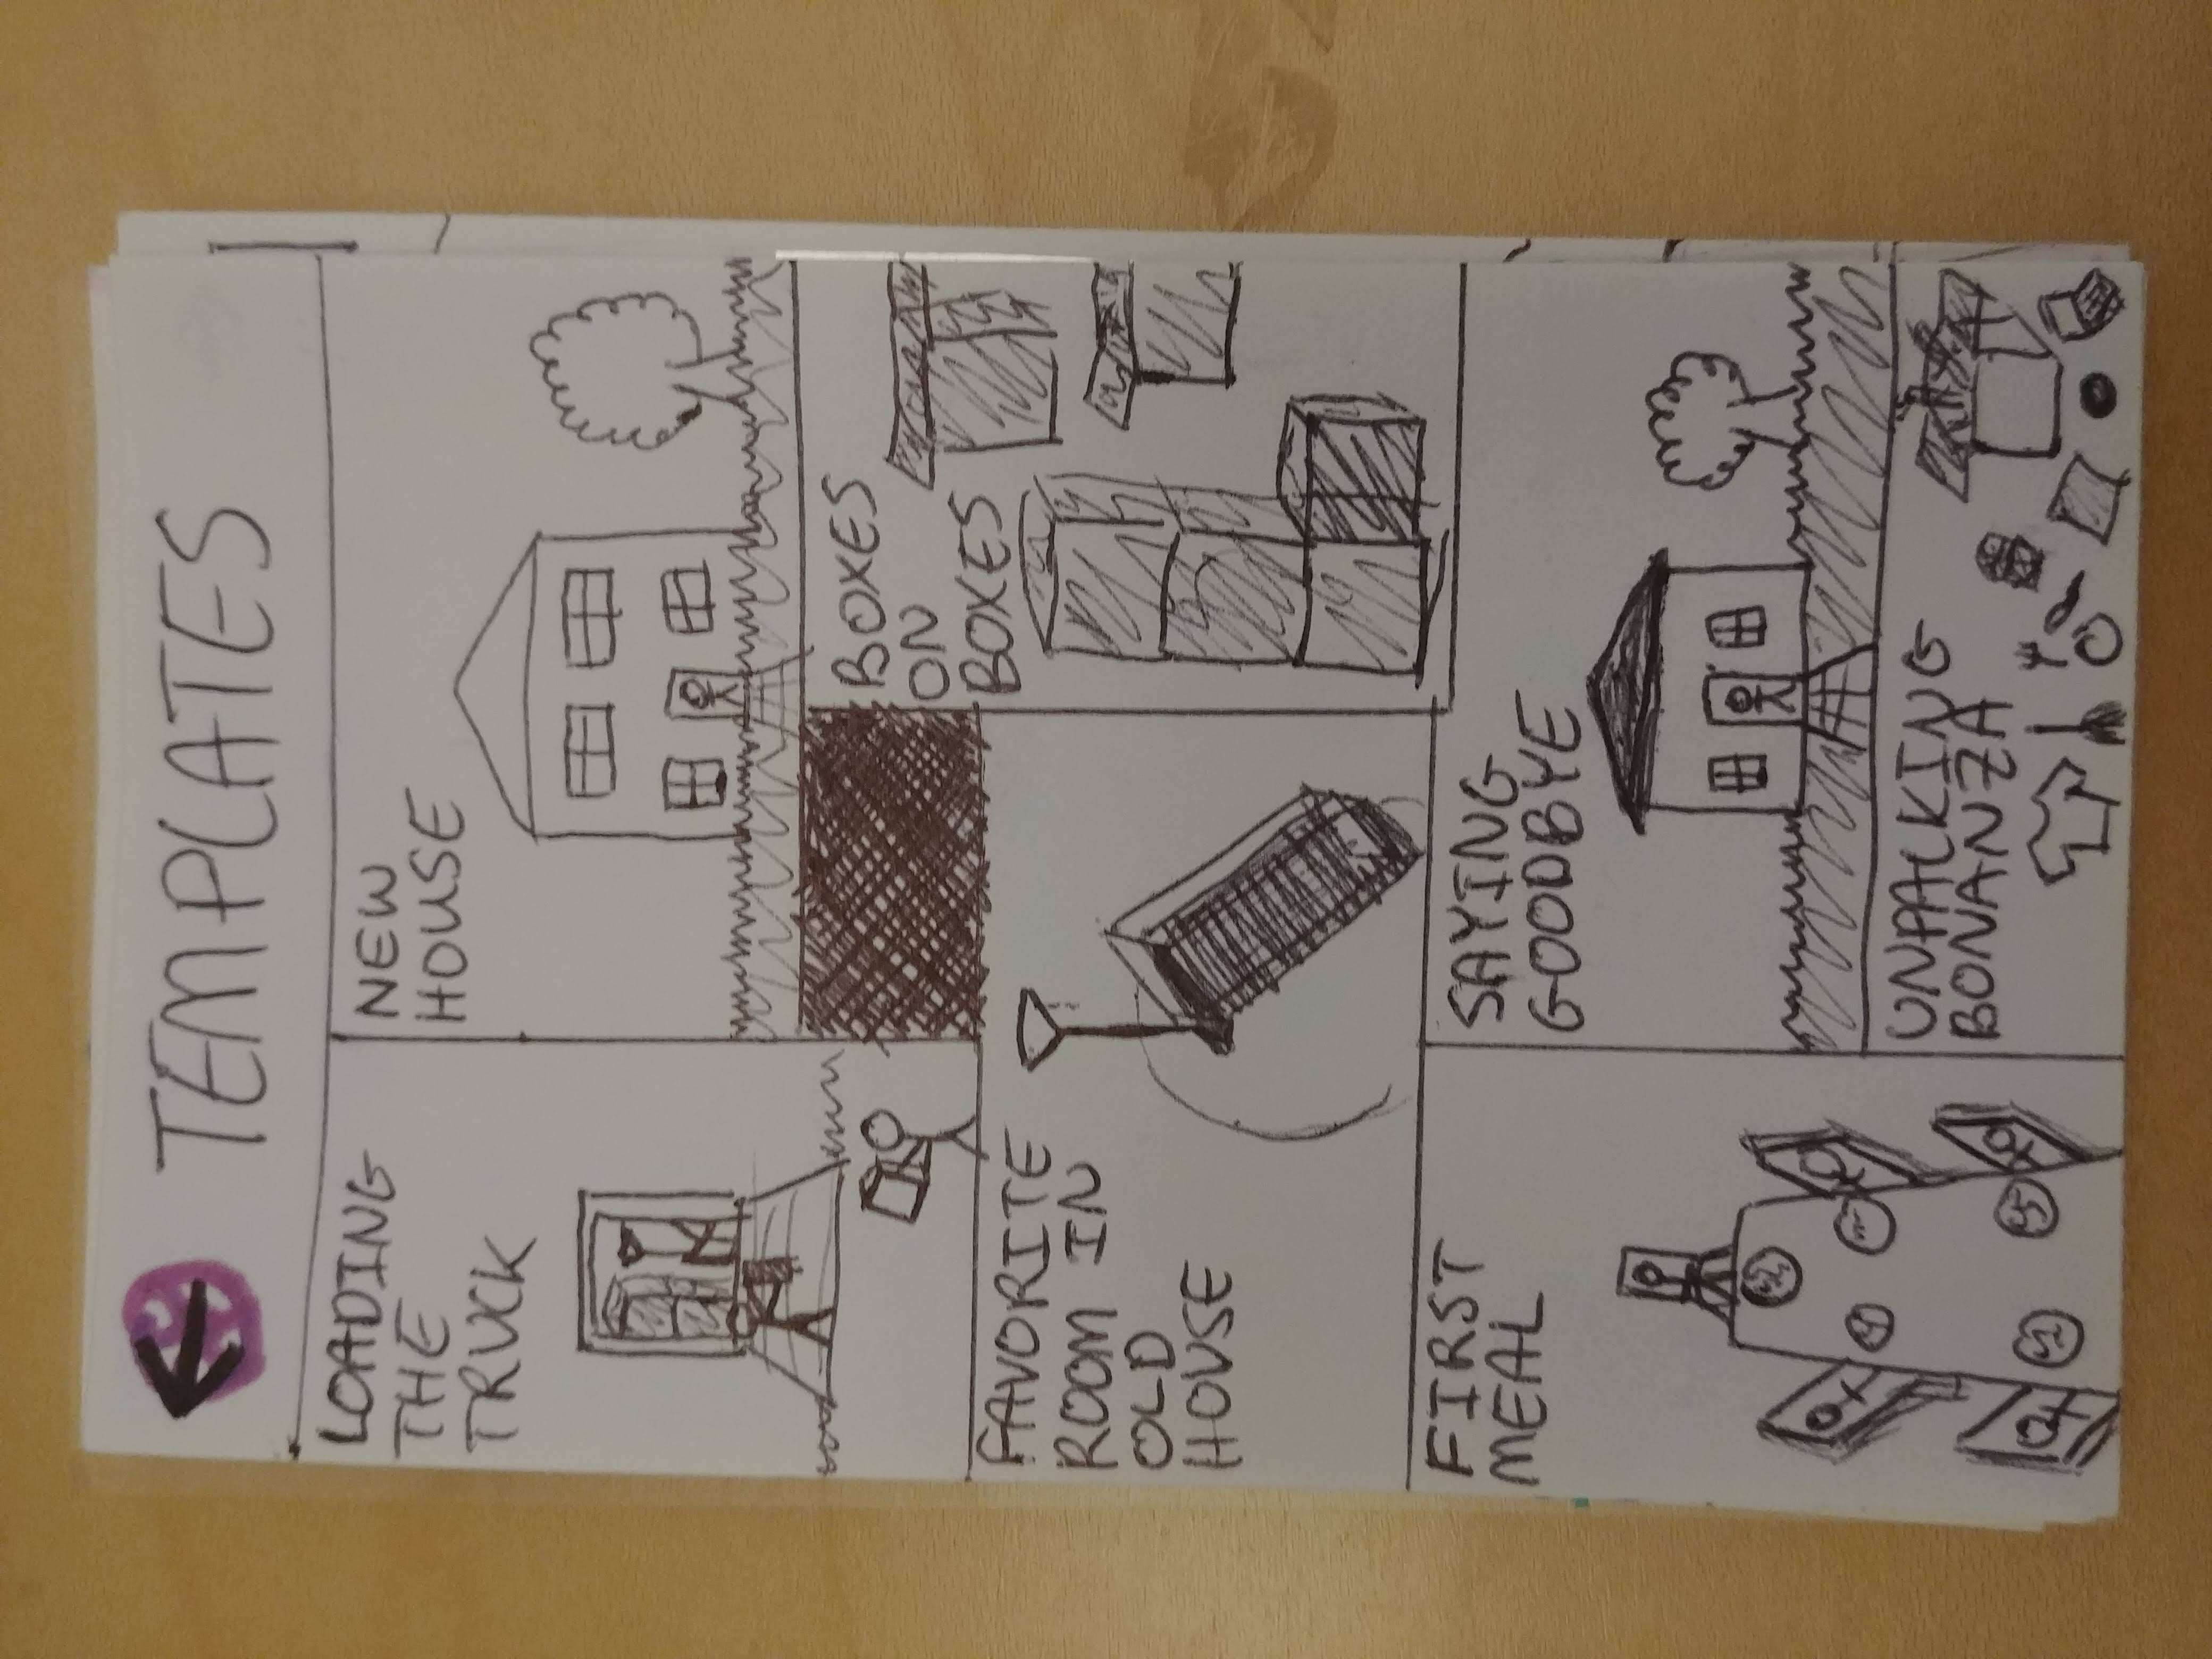 TEMPLATES
LOADING
THE
TRUCK
NEW
HOUSE
BOXES
ON
BOXES
FAVORITE
ROOM IN
OLD
HOUSE
FIRST
MEAL
SAYING
GOODBYE
UNPACKING
BONANZA